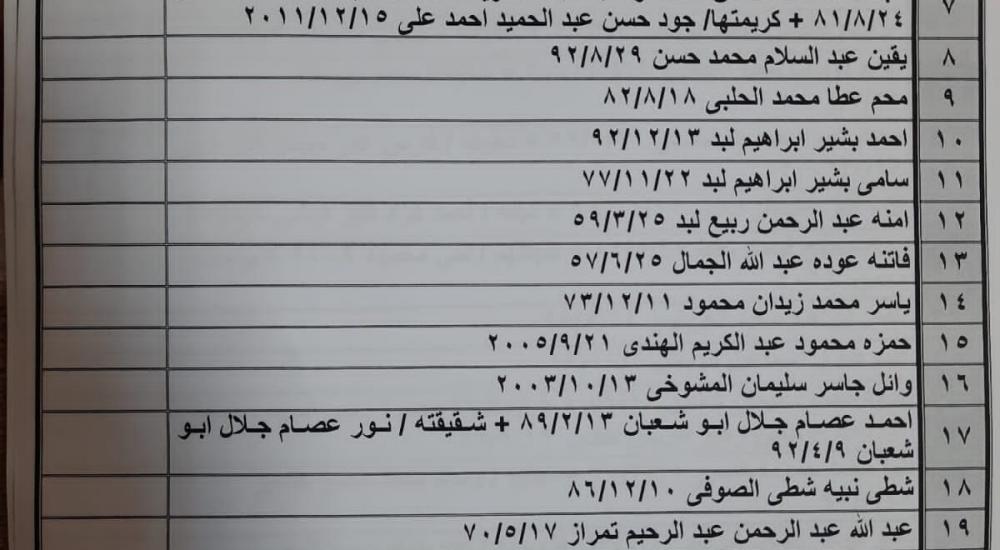 ٧
٨١/٨/٢٤ + كريمتها/ جود حسن عبد الحميد احمد على ٢٠١١/١٢/١٥
٨ يقين عبد السلام محمد حسن ٩٢/٨/٢٩
٩ محم عطا محمد الحلبى ٨٢/٨/١٨
١٠ احمد بشير ابراهيم لبد ٩٢/١٢/١٣
١١ سامى بشير ابراهيم لبد ٧٧/١١/٢٢
١٢ امنه عبد الرحمن ربيع لبد ٥٩/٣/٢٥
١٣ فاتنه عوده عبد الله الجمال ٥٧/٦/٢٥
١٤ ياسر محمد زيدان محمود ٧٣/١٢/١١
١٥ حمزه محمود عبد الكريم الهندى ٢٠٠٥/٩/٢١
١٦ وائل جاسر سليمان المشوخى ٢٠٠٣/١٠/١٣
١٧ احمد عصام جلال ابو شعبان ٨٩/٢/١٣ + شقيقته / نور عصام جلال ابو
شعبان ٩٢/٤/٩
١٨ شطى نبيه شطى الصوفى ٨٦/١٢/١٠
١٩ عبد الله عبد الرحمن عبد الرحيم تمراز ٧٠/٥/١٧